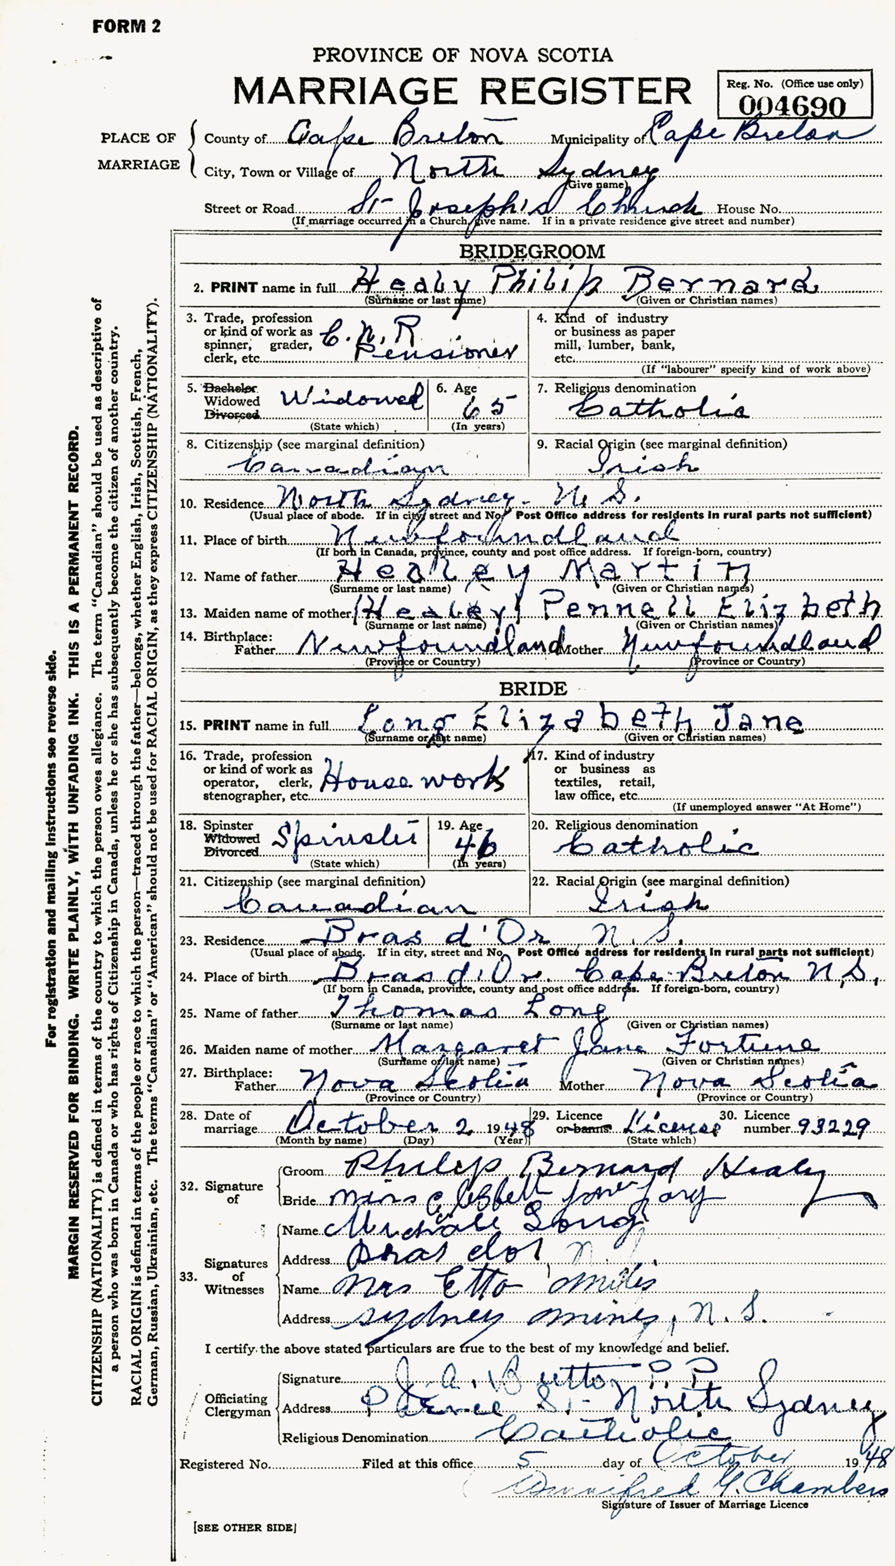 FORM 2
PROVINCE OF NOVA SCOTIA
MARRIAGE REGISTER
Reg. No. (Office use only)
004690
PLACE OF MARRIAGE
County of Cape Breton Municipality of Cape Breton
City, Town or Village of North Sydney
(Give name)
Street or Road St Joseph's Church House No.
(If marriage occurred in a Church give name. If in a private residence give street and number)
BRIDEGROOM
2. PRINT name in full Healy Philip Bernard
(Surname or last name) (Given or Christian names)
3. Trade, profession or kind of work as spinner, grader, clerk, etc. C.N.R Pensioner
4. Kind of industry or business as paper mill, lumber, bank, etc.
(If "labourer" specify kind of work above)
5. Bachelor Widowed Divorced Widowed
(State which)
6. Age 65
(In years)
7. Religious denomination Catholic
8. Citizenship (see marginal definition) Canadian
9. Racial Origin (see marginal definition) Irish
10. Residence North Sydney. N.S.
(Usual place of abode. If in city, street and No. Post Office address for residents in rural parts not sufficient)
11. Place of birth Newfoundland
(If born in Canada, province, county and post office address. If foreign-born, country)
12. Name of father Healey Martin
(Surname or last name) (Given or Christian names)
13. Maiden name of mother (Healey) Pennell Elizbeth
(Surname or last name) (Given or Christian names)
14. Birthplace:
Father Newfoundland Mother Newfoundland
(Province or Country) (Province or Country)
BRIDE
15. PRINT name in full Long Elizabeth Jane
(Surname or last name) (Given or Christian names)
16. Trade, profession or kind of work as operator, clerk, stenographer, etc. House work
17. Kind of industry or business as textiles, retail, law office, etc.
(If unemployed answer "At Home")
18. Spinster Widowed Divorced Spinster
(State which)
19. Age 46
(In years)
20. Religious denomination Catholic
21. Citizenship (see marginal definition) Canadian
22. Racial Origin (see marginal definition) Irish
23. Residence Bras d'Or N.S.
(Usual place of abode. If in city, street and No. Post Office address for residents in rural parts not sufficient)
24. Place of birth Bras d'Or. Cape Breton N.S.
(If born in Canada, province, county and post office address. If foreign-born, country)
25. Name of father Thomas Long
(Surname or last name) (Given or Christian names)
26. Maiden name of mother Margaret Jane Fortune
(Surname or last name) (Given or Christian names)
27. Birthplace:
Father Nova Scotia Mother Nova Scotia
(Province or Country) (Province or Country)
28. Date of marriage October 2, 1948
(Month by name) (Day) (Year)
29. Licence or banns License
(State which)
30. Licence number 93229
32. Signature of
Groom Philip Bernard Healy
Bride Miss Jane
33. Signatures of Witnesses
Name Long
Address Bras dor N
Name Mrs Etta Miles
Address Sydney mines, N.S.
I certify the above stated particulars are true to the best of my knowledge and belief.
Officiating Clergyman
Signature J. A. P.P.
Address Pierce St. North Sydney
Religious Denomination Catholic
Registered No. Filed at this office 5 day of October 1948
Winnifred G. Chambers
Signature of Issuer of Marriage Licence
[SEE OTHER SIDE]
For registration and mailing instructions see reverse side.
MARGIN RESERVED FOR BINDING. WRITE PLAINLY, WITH UNFADING INK. THIS IS A PERMANENT RECORD.
CITIZENSHIP (NATIONALITY) is defined in terms of the country to which the person owes allegiance. The term "Canadian" should be used as descriptive of
a person who was born in Canada or who has rights of Citizenship in Canada, unless he or she has subsequently become the citizen of another country.
RACIAL ORIGIN is defined in terms of the people or race to which the person—traced through the father—belongs, whether English, Irish, Scottish, French,
German, Russian, Ukrainian, etc. The terms "Canadian" or "American" should not be used for RACIAL ORIGIN, as they express CITIZENSHIP (NATIONALITY).